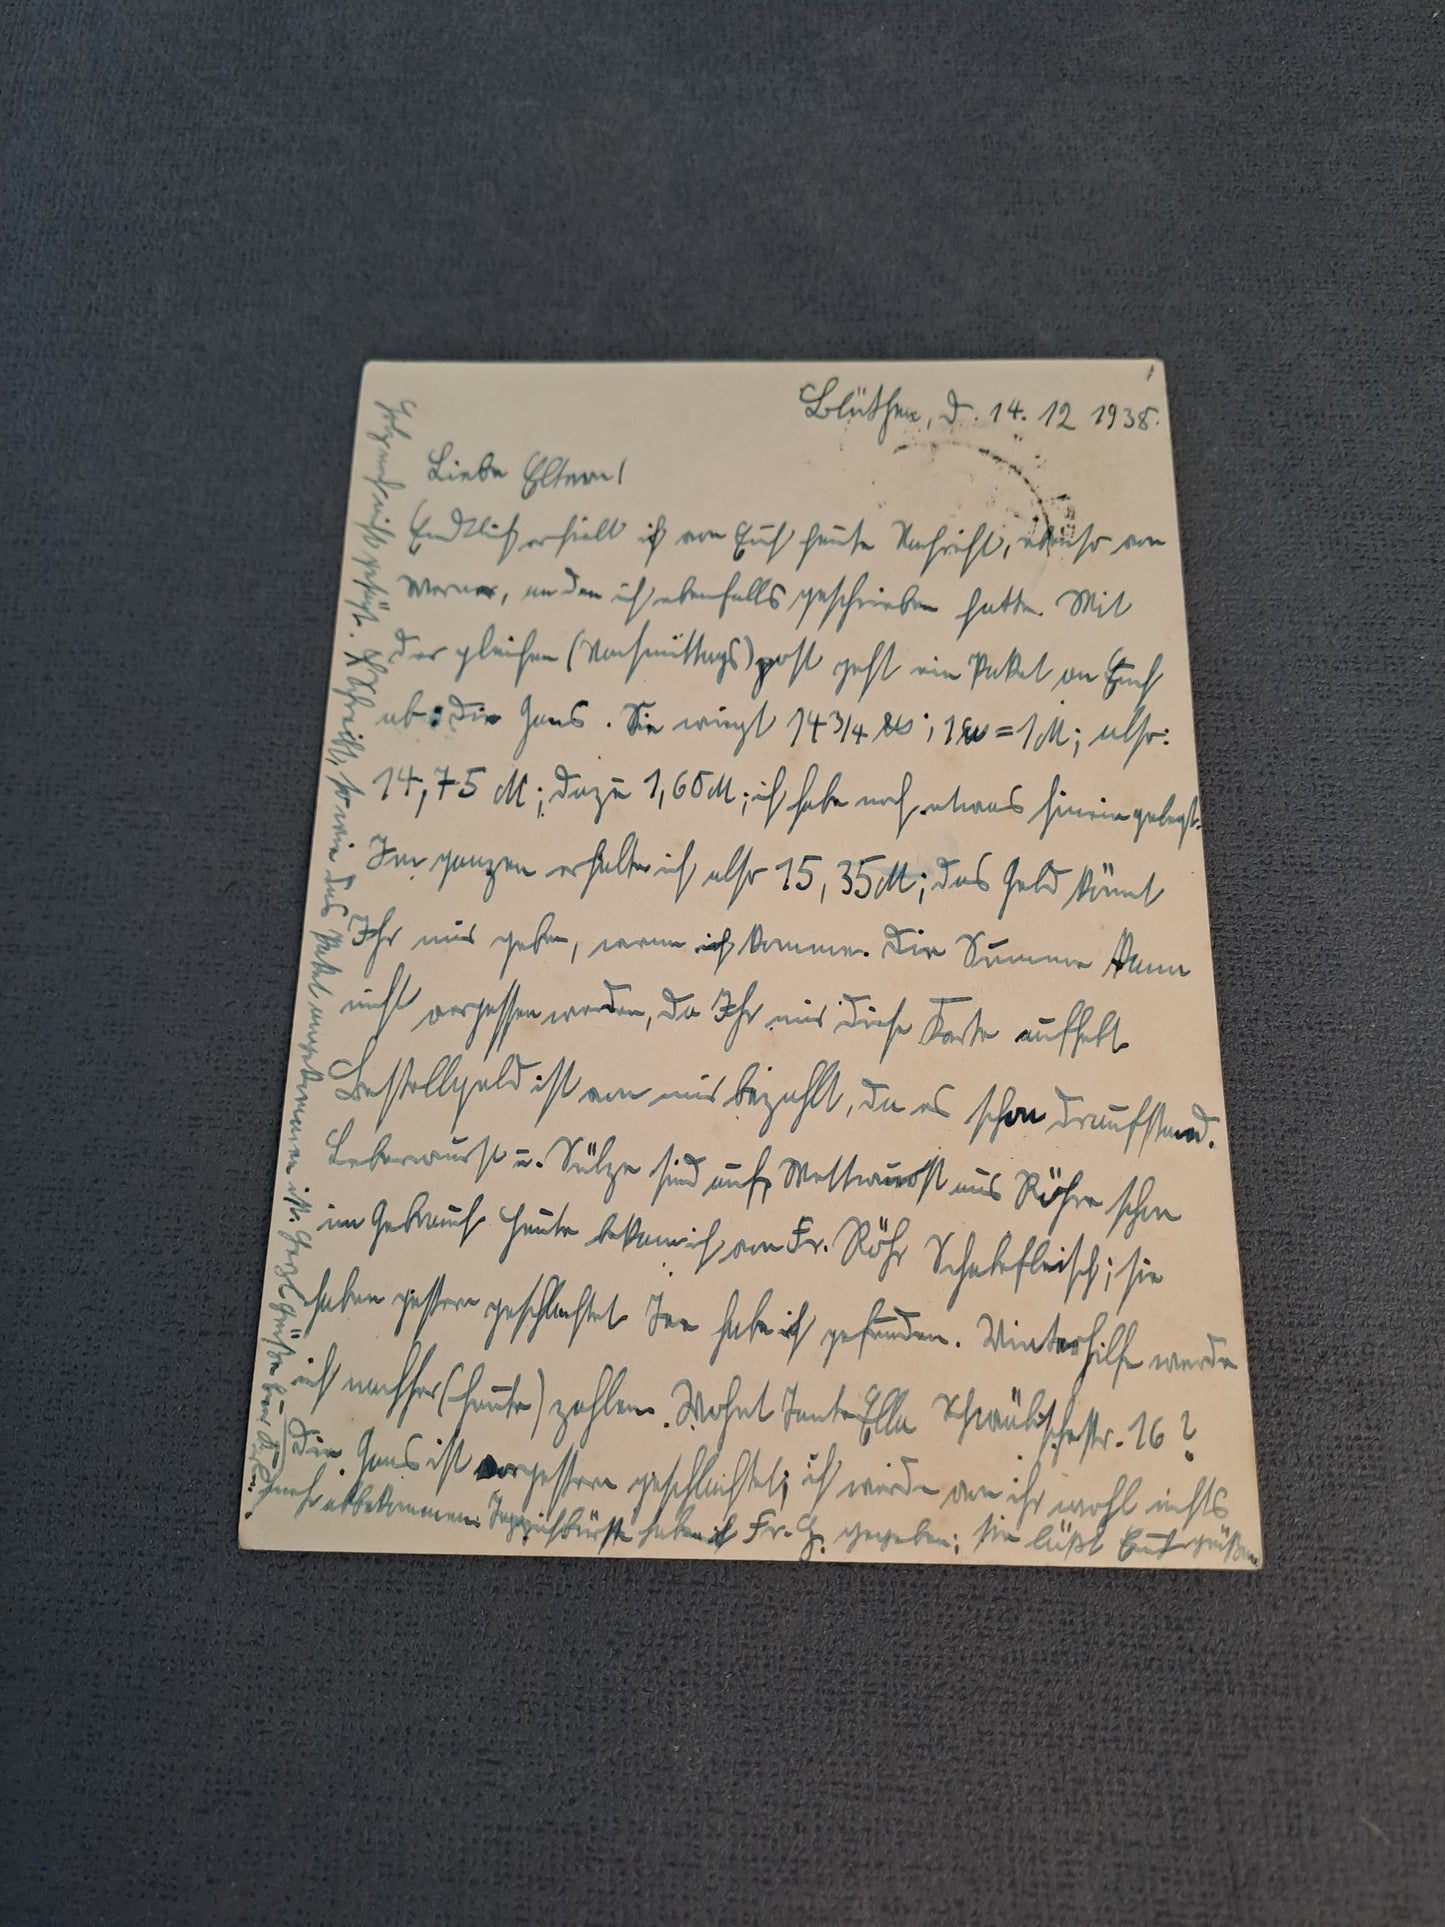 Blüthen, d. 14. 12 1938.
Liebe Eltern!
Endlich erhielt ich von Euch heute Nachricht, ebenso von
Werner, an den ich ebenfalls geschrieben hatte. Mit
der gleichen (Nachmittags)post geht ein Paket an Euch
ab: Die Gans. Sie wiegt 14 3/4 ℔; 1 ℔ = 1 M; also:
14,75 M; dazu 1,60 M; ich habe noch etwas hineingelegt.
Im ganzen erhalte ich also 15,35 M; das Geld könnt
Ihr mir geben, wenn ich komme. Die Summe kann
nicht vergessen werden, da Ihr mir diese Karte aufhebt
Bestellgeld ist von mir bezahlt, da es schon draufstand.
Leberwurst u. Sülze sind auf, Mettwurst aus Röhre schon
im Gebrauch heute bekam ich von Fr. Röhr Schabefleisch; sie
haben gestern geschlachtet habe ich gefunden. Winterhilfe werde
ich nachher (heute) zahlen. Wohnt Tante Ella 16?
Die Gans ist vorgestern geschlachtet; ich werde von ihr wohl nichts
mehr abbekommen. Teppichbürste habe ich Fr. G. gegeben; sie läßt Euch grüßen
Holz noch nicht gesägt. Schreibt, so wie das Paket angekommen ist. Herzl. Grüße